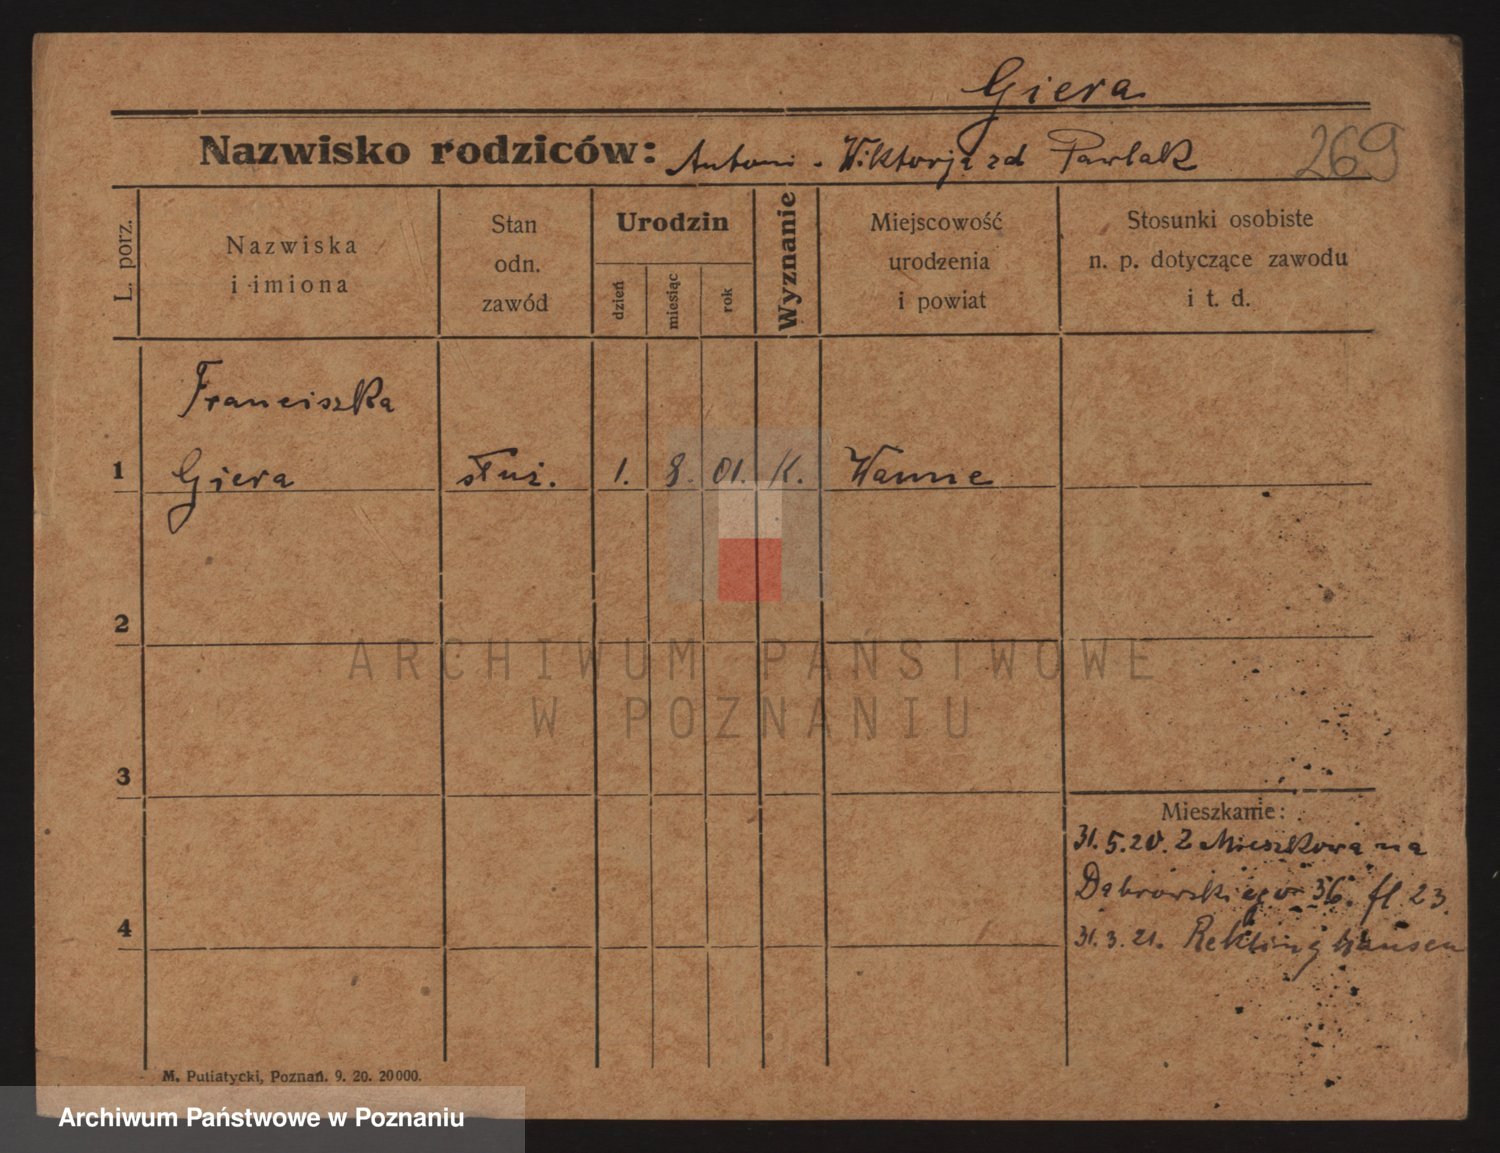 Giera
Nazwisko rodziców: Antoni - Wiktorja zd Pawlak 269
L. porz.
Nazwiska
i imiona
Stan
odn.
zawód
Urodzin
dzień
miesiąc
rok
Wyznanie
Miejscowość
urodzenia
i powiat
Stosunki osobiste
n. p. dotyczące zawodu
i t. d.
Franciszka
1 Giera służ. 1. 8. 01. K. Wanne
2
ARCHIWUM PAŃSTWOWE
W POZNANIU
3
Mieszkanie:
31.5.20. z Mieszkowa na
Dąbrowskiego 36. fl 23.
4
31.3.21. Rektinghausen
M. Putiatycki, Poznań. 9. 20. 20000.
Archiwum Państwowe w Poznaniu